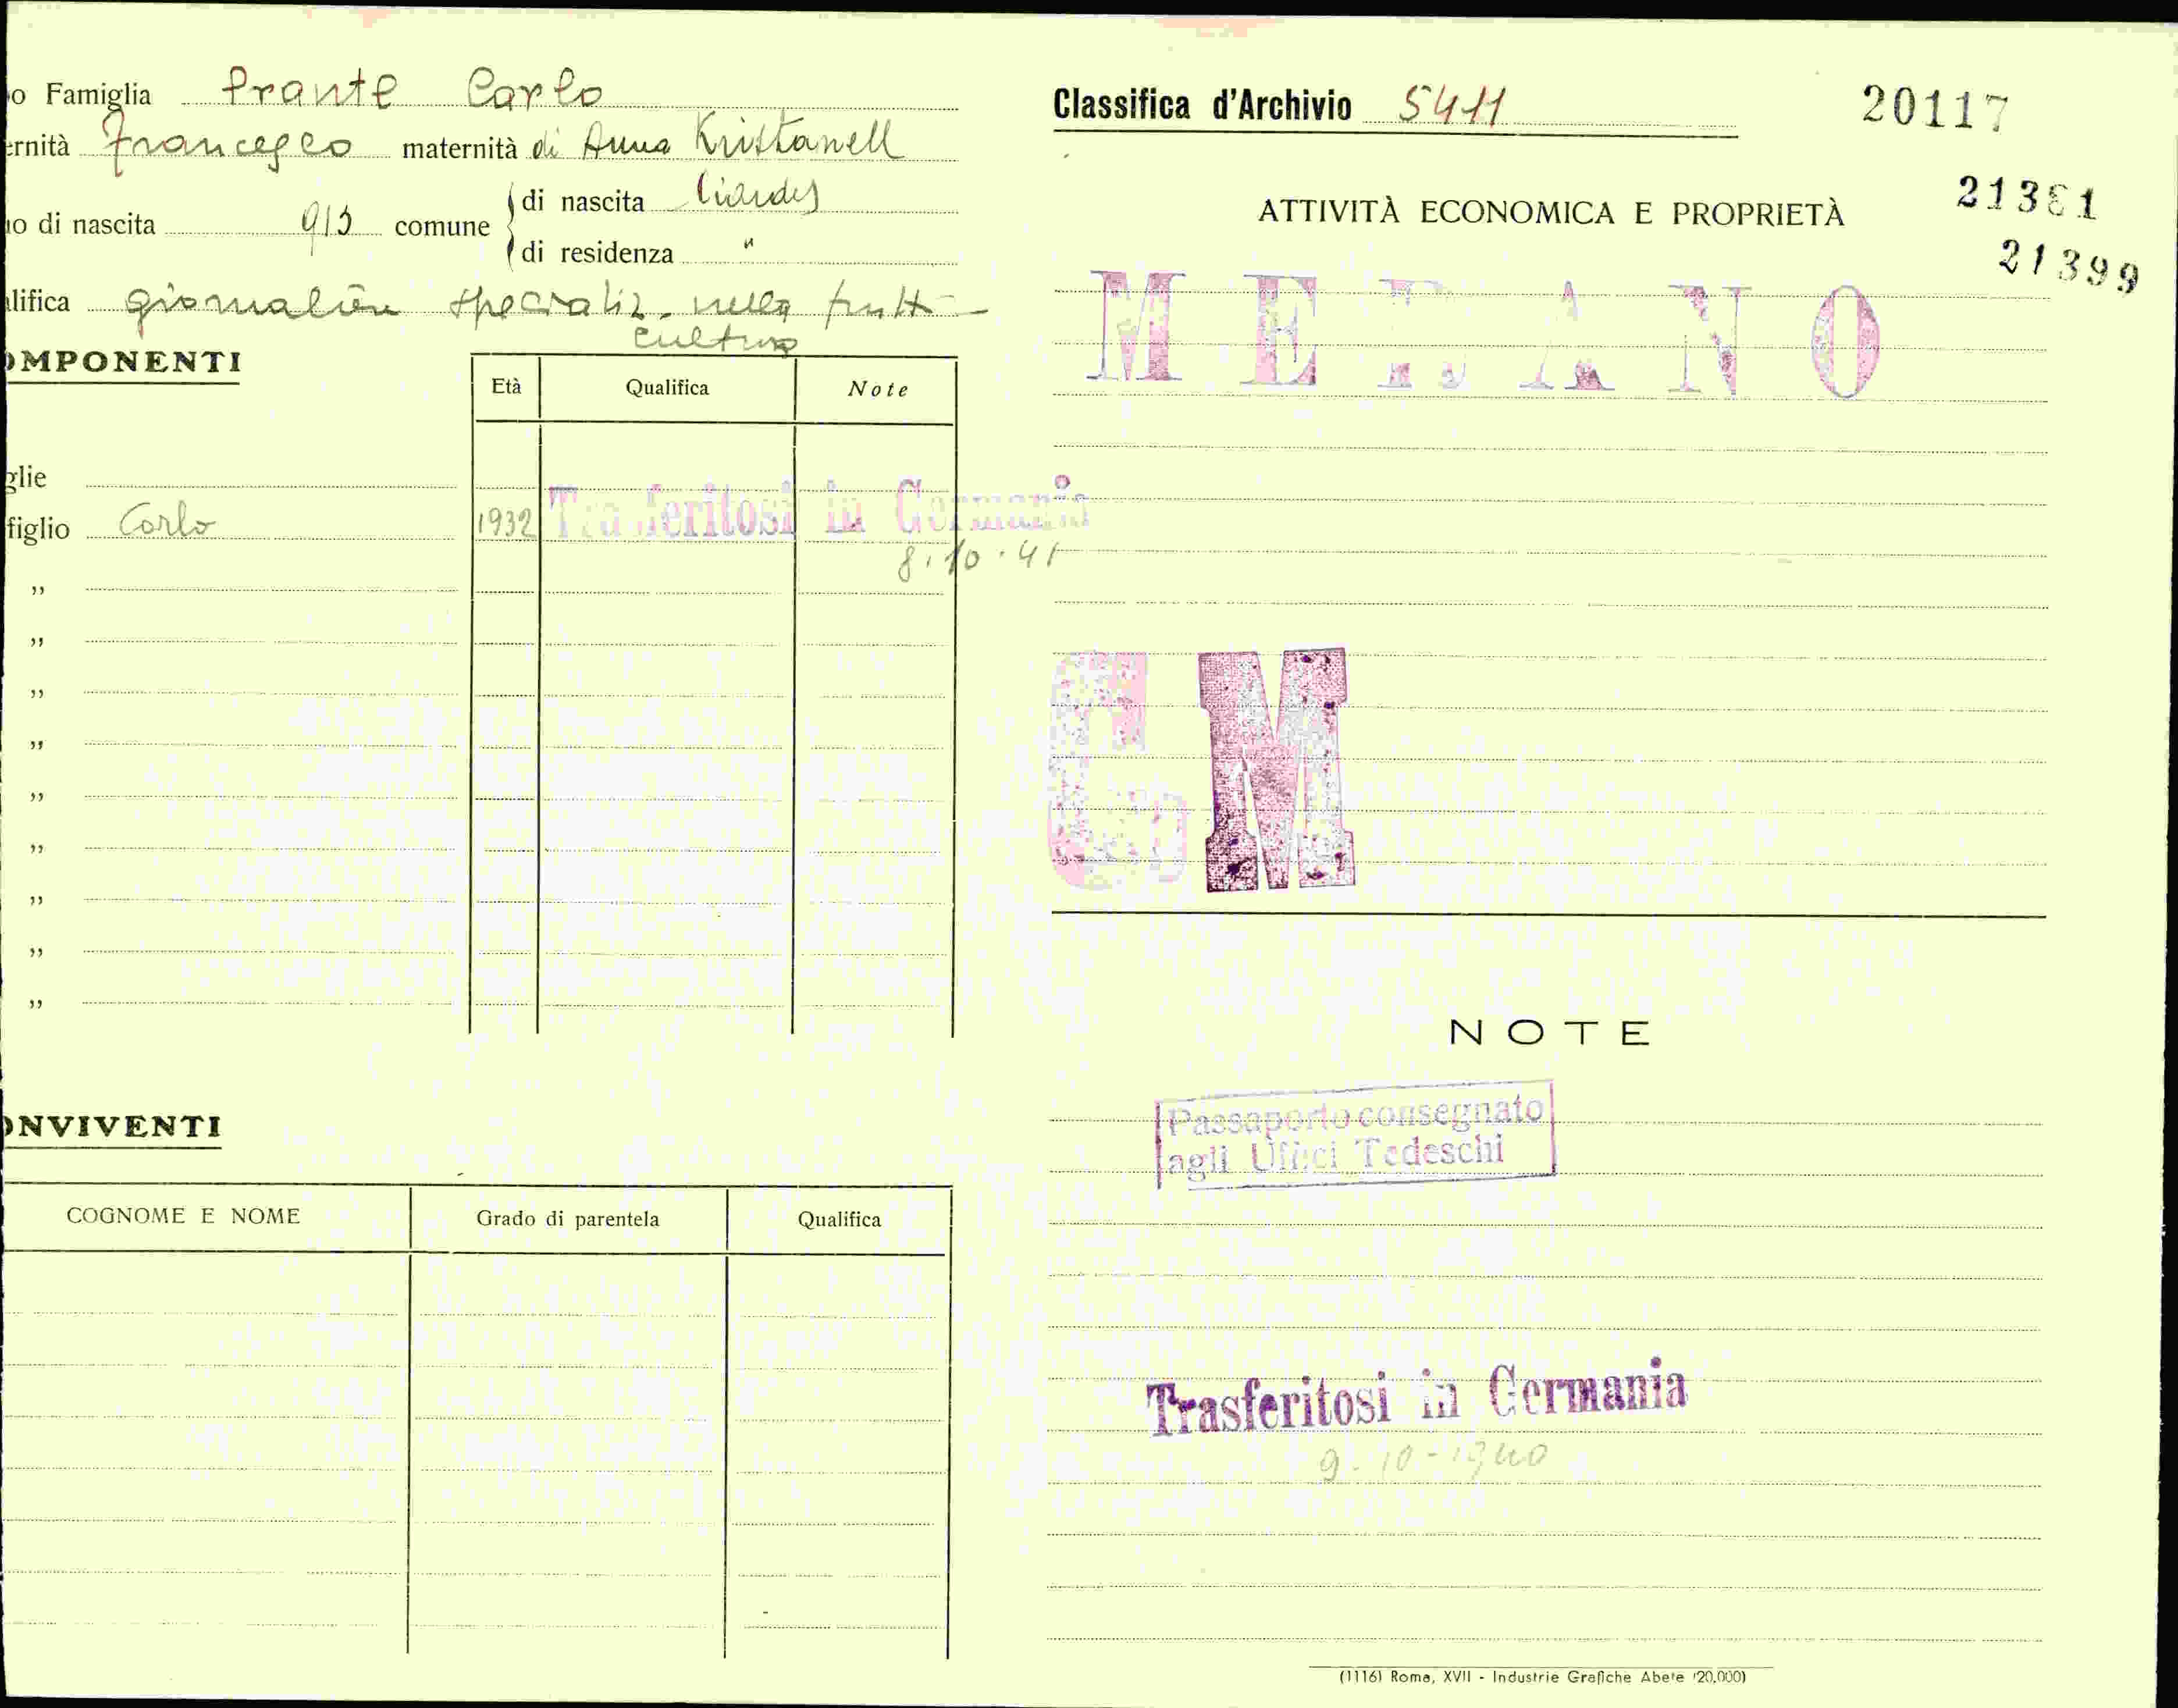 o Famiglia Prante Carlo
ernità Francesco maternità di Anna Kristanell
no di nascita 913 comune
di nascita Ciardes
di residenza "
alifica giornaliere specializ. nella frutti-
cultura
OMPONENTI
Età Qualifica Note
glie
figlio Carlo 1932 Trasferitosi in Germania
8.10.41
"
"
"
"
"
"
"
"
"
ONVIVENTI
COGNOME E NOME Grado di parentela Qualifica
Classifica d'Archivio 5411 20117
21381
ATTIVITÀ ECONOMICA E PROPRIETÀ
21399
MERANO
G M
NOTE
Passaporto consegnato
agli Uffici Tedeschi
Trasferitosi in Germania
9-10-1940
(1116) Roma, XVII - Industrie Grafiche Abete (20.000)